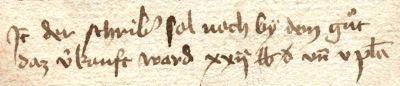 It der schrib' sol noch by dem gůt
daz v'kauft ward xxij lb d vn v pla